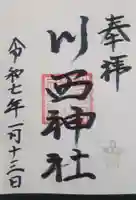 奉拝
川西神社
令和七年一月十三日